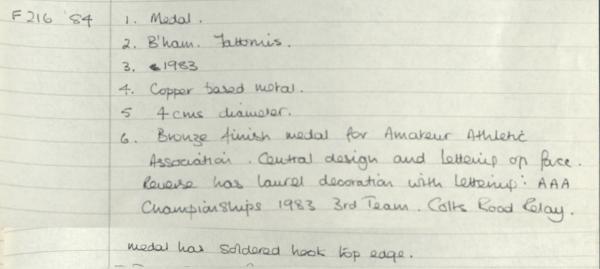 F216 '84
1. Medal.
2. B'ham. Fattorinis.
3. 1983
4. Copper based metal.
5 4cms diameter.
6. Bronze finish medal for Amateur Athletic
Association. Central design and lettering on face.
Reverse has laurel decoration with lettering: AAA
Championships 1983 3rd Team. Colts Road Relay.
medal has soldered hook top edge.